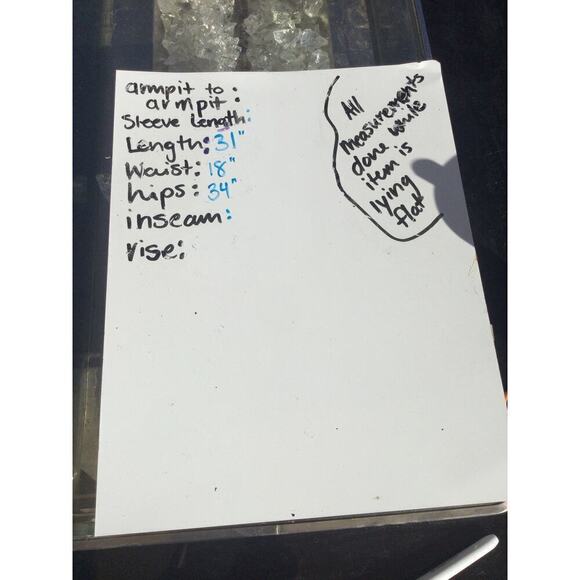 armpit to:
armpit:
Sleeve Length:
Length: 31"
Waist: 18"
hips: 34"
inseam:
rise:
All
measurements
done while
item is
lying
flat